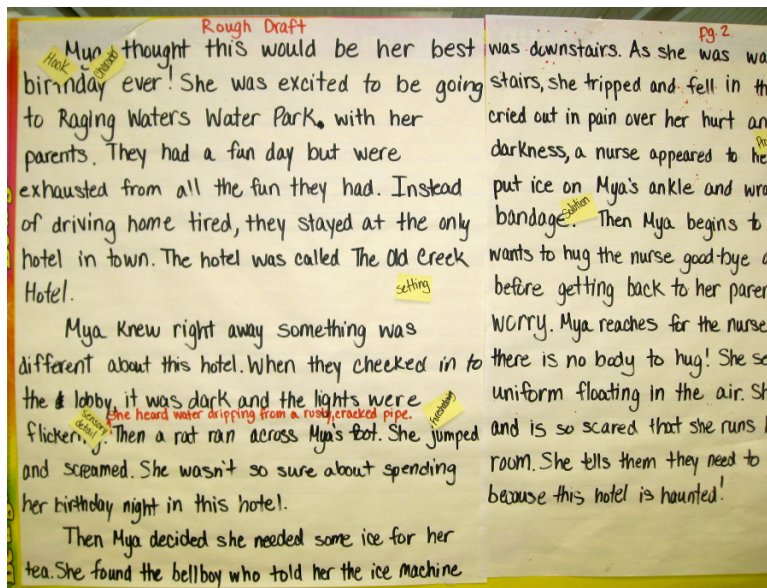 Rough Draft
Mya thought this would be her best
Hook
character
birthday ever! She was excited to be going
to Raging Waters Water Park. with her
parents. They had a fun day but were
exhausted from all the fun they had. Instead
of driving home tired, they stayed at the only
hotel in town. The hotel was called The Old Creek
Hotel.
setting
Mya knew right away something was
different about this hotel. When they checked in to
the lobby, it was dark and the lights were
She heard water dripping from a rusty, cracked pipe.
sensory
detail
flickering. Then a rat ran across Mya's foot. She jumped
and screamed. She wasn't so sure about spending
her birthday night in this hotel.
Then Mya decided she needed some ice for her
tea. She found the bellboy who told her the ice machine
pg. 2
was downstairs. As she was wa
stairs, she tripped and fell in th
cried out in pain over her hurt an
darkness, a nurse appeared to he
put ice on Mya's ankle and wra
bandage. Then Mya begins to
Solution
wants to hug the nurse good-bye
before getting back to her paren
worry. Mya reaches for the nurse
there is no body to hug! She se
uniform floating in the air. Sh
and is so scared that she runs
room. She tells them they need to
because this hotel is haunted!